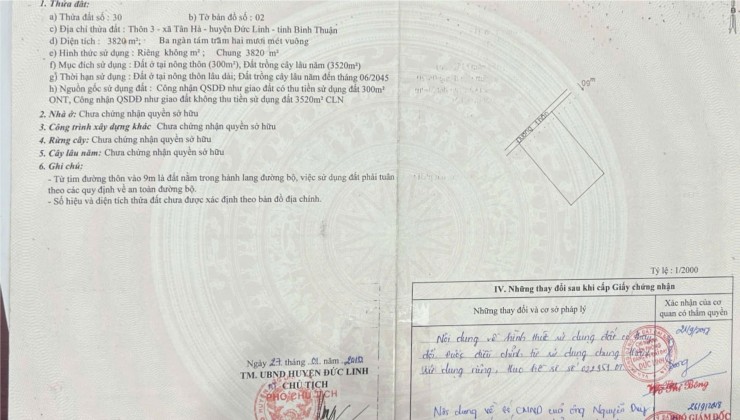 1. Thửa đất:
a) Thửa đất số : 30 b) Tờ bản đồ số : 02
c) Địa chỉ thửa đất : Thôn 3 - xã Tân Hà - huyện Đức Linh - tỉnh Bình Thuận
d) Diện tích : 3820 m²; Ba ngàn tám trăm hai mươi mét vuông
e) Hình thức sử dụng : Riêng không m² ; Chung 3820 m²
f) Mục đích sử dụng : Đất ở tại nông thôn (300m²), Đất trồng cây lâu năm (3520m²)
g) Thời hạn sử dụng : Đất ở tại nông thôn lâu dài; Đất trồng cây lâu năm đến tháng 06/2045
h) Nguồn gốc sử dụng đất : Công nhận QSDĐ như giao đất có thu tiền sử dụng đất 300m²
ONT, Công nhận QSDĐ như giao đất không thu tiền sử dụng đất 3520m² CLN
2. Nhà ở: Chưa chứng nhận quyền sở hữu
3. Công trình xây dựng khác Chưa chứng nhận quyền sở hữu
4. Rừng cây: Chưa chứng nhận quyền sở hữu
5. Cây lâu năm: Chưa chứng nhận quyền sở hữu
6. Ghi chú:
- Từ tim đường thôn vào 9m là đất nằm trong hành lang đường bộ, việc sử dụng đất phải tuân
theo các quy định về an toàn đường bộ.
- Số hiệu và diện tích thửa đất chưa được xác định theo bản đồ địa chính.
Ngày 27 tháng 01 năm
TM. UBND HUYỆN ĐỨC LINH
CHỦ TỊCH
PHÓ CHỦ TỊCH
Đường Thôn
Tỷ lệ : 1/2000
IV. Những thay đổi sau khi cấp Giấy chứng nhận
Những thay đổi và cơ sở pháp lý
Xác nhận của cơ
quan có thẩm quyền
Nội dung về hình thức sử dụng đất có thay
đổi, được điều chỉnh từ sử dụng chung
sử dụng riêng, theo hồ sơ số
Nội dung về số CMND của ông Nguyễn Duy
PHÓ GIÁM ĐỐC